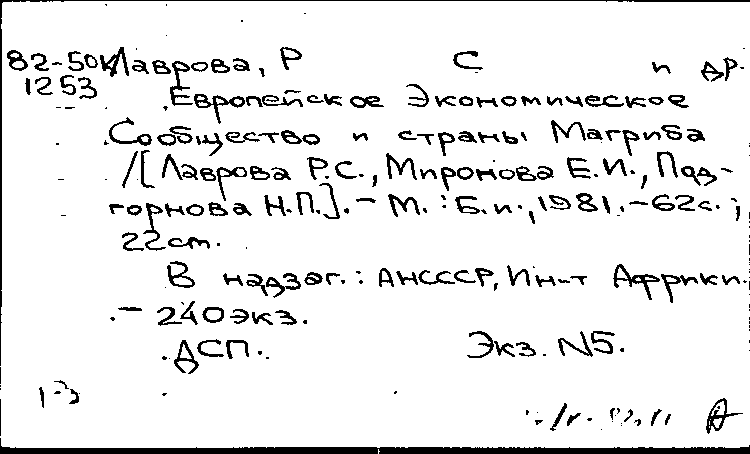 82-50к Лаврова, Р С и др.
1253
Европейское Экономическое
Сообщество и страны Магриба
/[Лаврова Р.С., Миронова Е.И., Под-
горнова Н.П.]. - М. : Б.и., 1981. - 62с. ;
22см.
В надзаг.: АНСССР, Ин-т Африки.
- 240экз.
ДСП. Экз. N5.
1-3